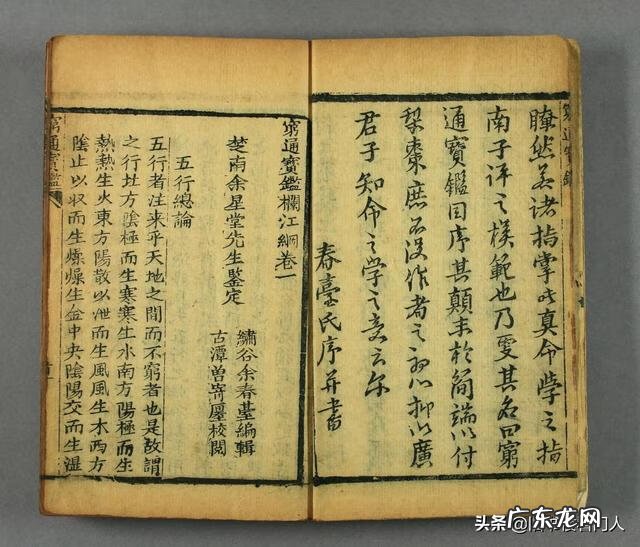 窮通寶鑑
瞭然若諸指掌此真命學之指
南子評之模範也乃更其名曰窮
通寶鑑因序其顛末於簡端以付
梨棗庶不沒作者之初心抑以廣
君子知命之學之意云尔
春臺氏序并書
窮通寶鑑欄江網卷一
楚南余星堂先生鑒定
繡谷余春臺編輯
古潭曽寄廛校閱
五行總論
五行者往来乎天地之間而不窮者也是故謂
之行北方陰極而生寒寒生水南方陽極而生
熱熱生火東方陽散以泄而生風風生木西方
陰止以収而生燥燥生金中央陰陽交而生溼
窮通寶鑑
头条
广东龙网